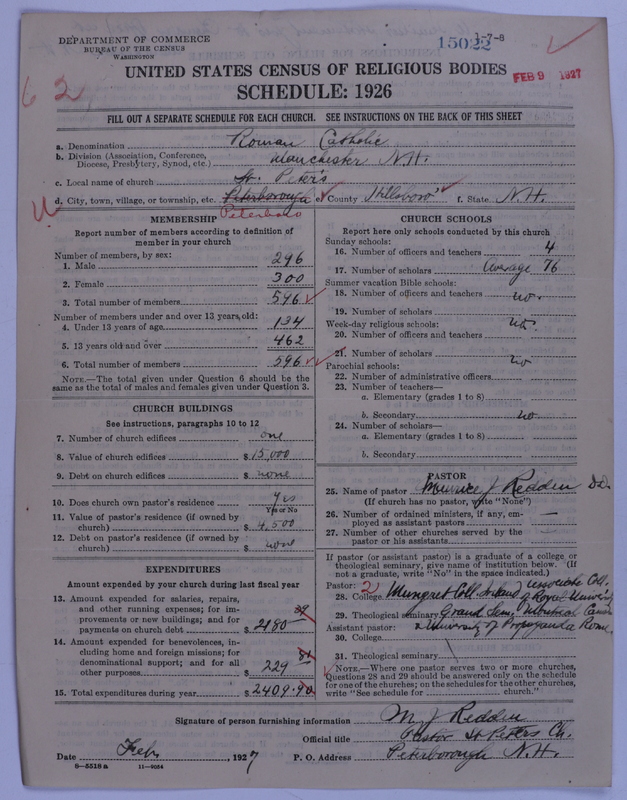 DEPARTMENT OF COMMERCE
BUREAU OF THE CENSUS
WASHINGTON
15022
1-7-8
UNITED STATES CENSUS OF RELIGIOUS BODIES
FEB 9 1927
SCHEDULE: 1926
62
FILL OUT A SEPARATE SCHEDULE FOR EACH CHURCH. SEE INSTRUCTIONS ON THE BACK OF THIS SHEET
a. Denomination Roman Catholic
b. Division (Association, Conference, Diocese, Presbytery, Synod, etc.) Manchester N.H.
c. Local name of church St. Peter's
d. City, town, village, or township, etc. Peterborough e. County Hillsboro f. State N.H.
Peterboro
MEMBERSHIP
Report number of members according to definition of
member in your church
Number of members, by sex:
1. Male 296
2. Female 300
3. Total number of members 596
Number of members under and over 13 years old:
4. Under 13 years of age 134
5. 13 years old and over 462
6. Total number of members 596
NOTE.—The total given under Question 6 should be the
same as the total of males and females given under Question 3.
CHURCH BUILDINGS
See instructions, paragraphs 10 to 12
7. Number of church edifices one
8. Value of church edifices $ 15,000
9. Debt on church edifices $ none
10. Does church own pastor's residence Yes
Yes or No
11. Value of pastor's residence (if owned by
church) $ 4,500
12. Debt on pastor's residence (if owned by
church) $ none
EXPENDITURES
Amount expended by your church during last fiscal year
13. Amount expended for salaries, repairs,
and other running expenses; for im-
provements or new buildings; and for
payments on church debt $ 2180
14. Amount expended for benevolences, in-
cluding home and foreign missions; for
denominational support; and for all
other purposes $ 229
15. Total expenditures during year $ 2409.90
CHURCH SCHOOLS
Report here only schools conducted by this church
Sunday schools:
16. Number of officers and teachers 4
17. Number of scholars Average 76
Summer vacation Bible schools:
18. Number of officers and teachers no.
19. Number of scholars
Week-day religious schools: no.
20. Number of officers and teachers
21. Number of scholars no
Parochial schools:
22. Number of administrative officers
23. Number of teachers—
a. Elementary (grades 1 to 8)
b. Secondary no.
24. Number of scholars—
a. Elementary (grades 1 to 8)
b. Secondary
PASTOR
25. Name of pastor Maurice J Redden D.D.
(If church has no pastor, write "None")
26. Number of ordained ministers, if any, em-
ployed as assistant pastors —
27. Number of other churches served by the
pastor or his assistants —
If pastor (or assistant pastor) is a graduate of a college or
theological seminary, give name of institution below. (If
not a graduate, write "No" in the space indicated.)
Pastor: 2 Associate Coll.
28. College Mungret Coll. Ireland of Royal University
29. Theological seminary Grand Sem. Montreal Can
Assistant pastor: & University of Propaganda Rome
30. College
31. Theological seminary
NOTE.—Where one pastor serves two or more churches,
Questions 28 and 29 should be answered only on the schedule
for one of the churches; on the schedules for the other churches,
write "See schedule for church."
Signature of person furnishing information M. J Redden
Official title Pastor St Peters Ch.
Date Feb, 1927 P. O. Address Peterborough N.H.
8-5518a 11-9054